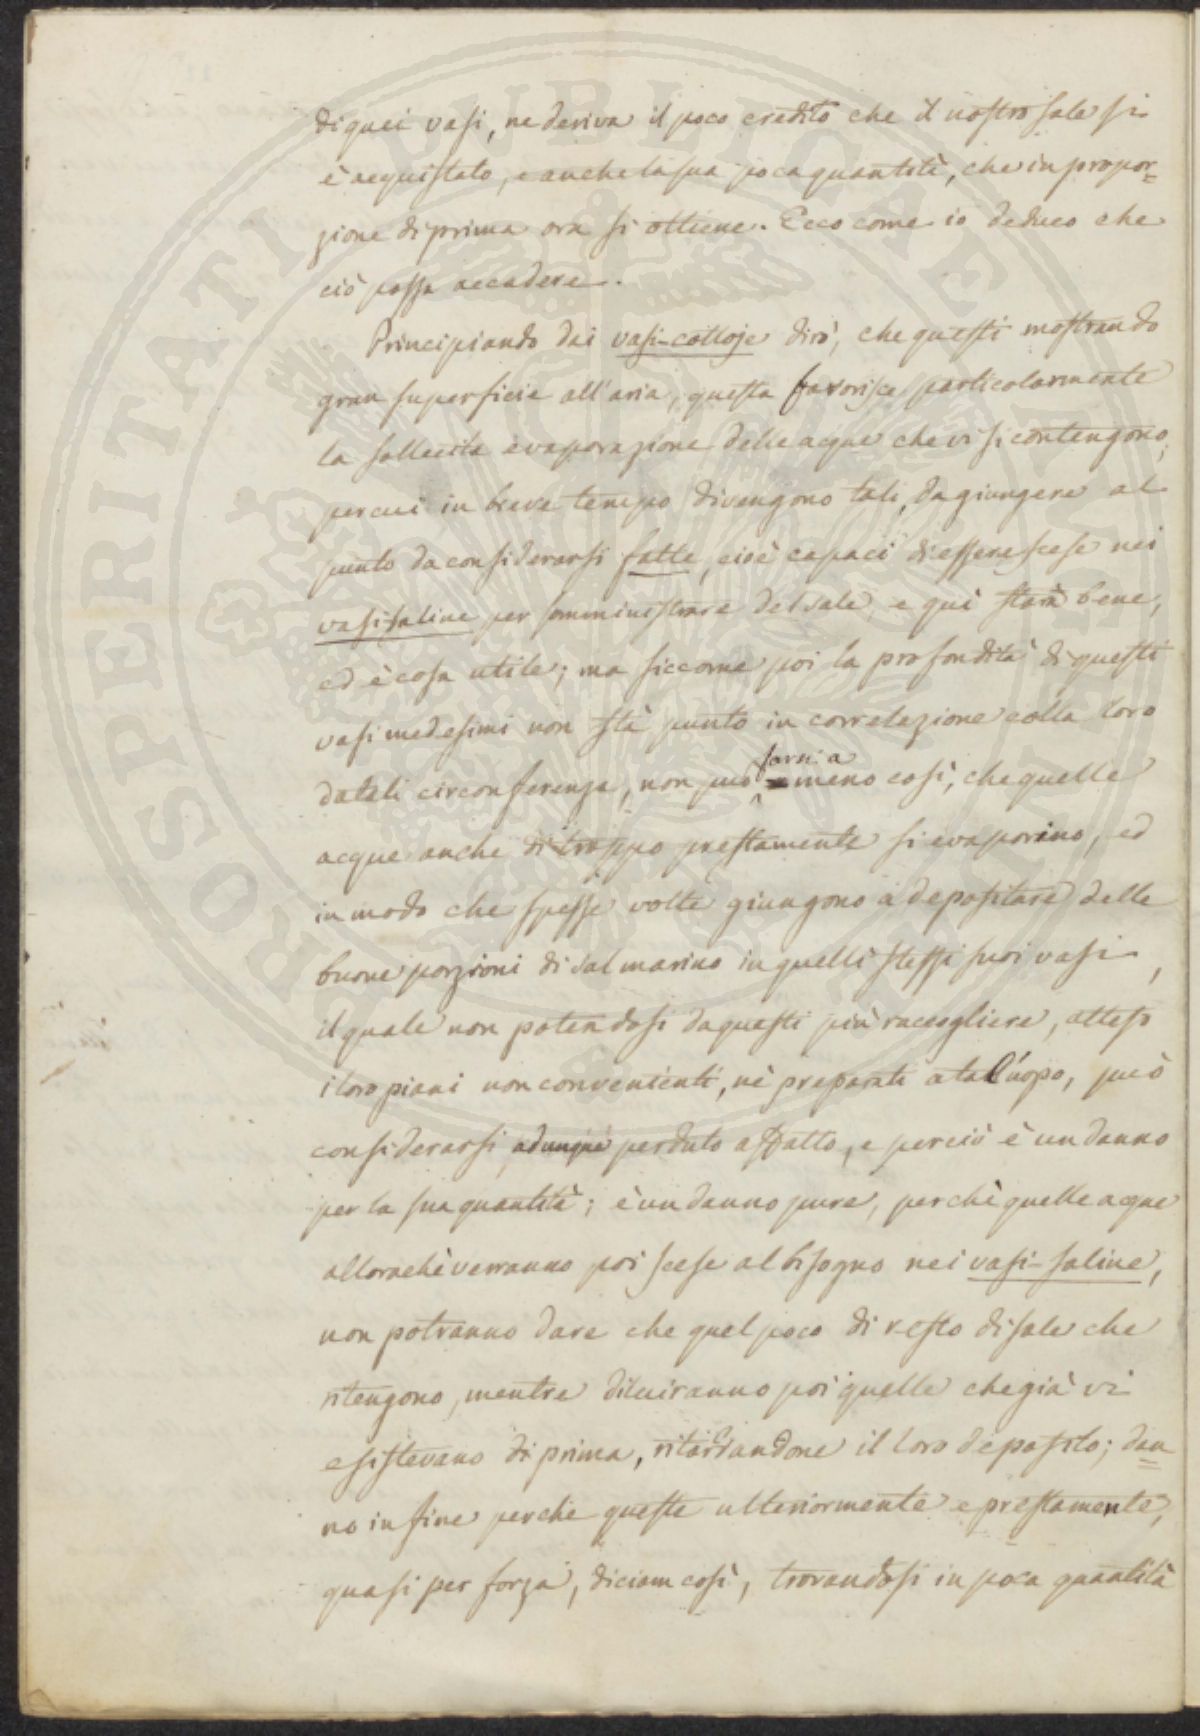 di quei vasi, ne deriva il poco credito che il nostro sale si
è acquistato, e anche la sua poca quantità, che in propor=
zione di prima ora si ottiene. Ecco come io deduco che
ciò possa accadere.
Principiando dai vasi-cottoje dirò, che questi mostrando
gran superficie all'aria, questa favorisce particolarmente
la sollecita evaporazione delle acque che vi si contengono,
per cui in breve tempo divengono tali, da giungere al
punto da considerarsi fatte, cioè capaci di essere scese nei
vasi-saline per somministrare del sale, e quì starà bene,
ed è cosa utile; ma siccome poi la profondità di questi
vasi medesimi non stà punto in correlazione colla loro
datali circonferenza, non può farsi a meno così, che quelle
acque anche di troppo prestamente si evaporino, ed
in modo che spesse volte giungono a depositare delle
buone porzioni di sal marino in quelli stessi suoi vasi,
il quale non potendosi da questi più raccogliere, atteso
i loro piani non convenienti, nè preparati a tal'uopo, può
considerarsi adunque perduto affatto, e perciò è un danno
per la sua quantità; è un danno pure, perchè quelle acque
allorachè verranno poi scese al bisogno nei vasi-saline,
non potranno dare che quel poco di resto di sale che
ritengono, mentre diluiranno poi quelle che già vi
esistevano di prima, ritardandone il loro deposito; dan=
no infine perchè queste ulteriormente e prestamente,
quasi per forza, diciam così, trovandosi in poca quantità
PROSPERITATI PUBLICAE